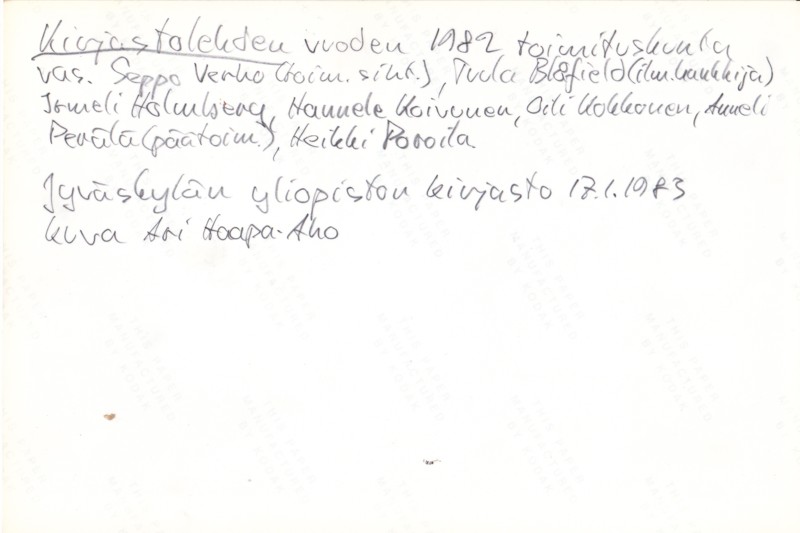 Kirjastolehden vuoden 1982 toimituskunta
vas. Seppo Verho (toim. siht.), Tuula Blåfield (ilm. hankkija)
Irmeli Holmberg, Hannele Koivunen, Oili Kokkonen, Anneli
Perälä (päätoim.), Heikki Poroila
Jyväskylän yliopiston kirjasto 17.1.1983
kuva Ari Haapa-Aho
THIS PAPER
MANUFACTURED
BY KODAK